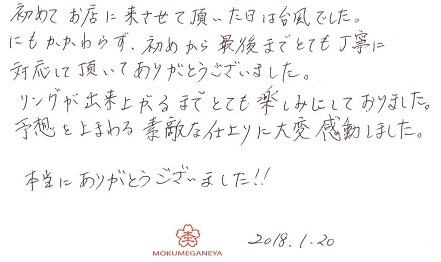 初めてお店に来させて頂いた日は台風でした。
にもかかわらず、初めから最後までとても丁寧に
対応して頂いてありがとうございました。
リングが出来上がるまでとても楽しみにしておりました。
予想を上まわる素敵な仕上りに大変感動しました。
本当にありがとうございました!!
MOKUMEGANEYA
2018.1.20